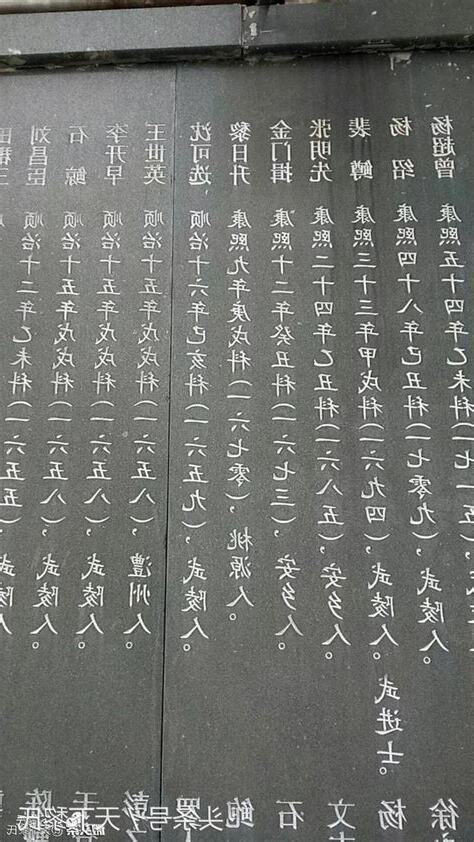 刘昌臣 顺治十二年乙未科(一六五五),武陵人。
石 鲸 顺治十五年戊戌科(一六五八),武陵人。
李开早 顺治十五年戊戌科(一六五八),武陵人。
王世英 顺治十五年戊戌科(一六五八),澧州人。
沈可选 顺治十六年己亥科(一六五九),武陵人。
黎日升 康熙九年庚戌科(一六七零),桃源人。
金门揖 康熙十二年癸丑科(一六七三),安乡人。
张明先 康熙二十四年乙丑科(一六八五),安乡人。
裴 鳟 康熙三十三年甲戌科(一六九四),武陵人。武进士。
杨 绍 康熙四十八年己丑科(一七零九),武陵人。
杨超曾 康熙五十四年乙未科(一七一五)
陈
王
彭
罗
鲍
石
文
杨
徐
头条号 天下黎氏